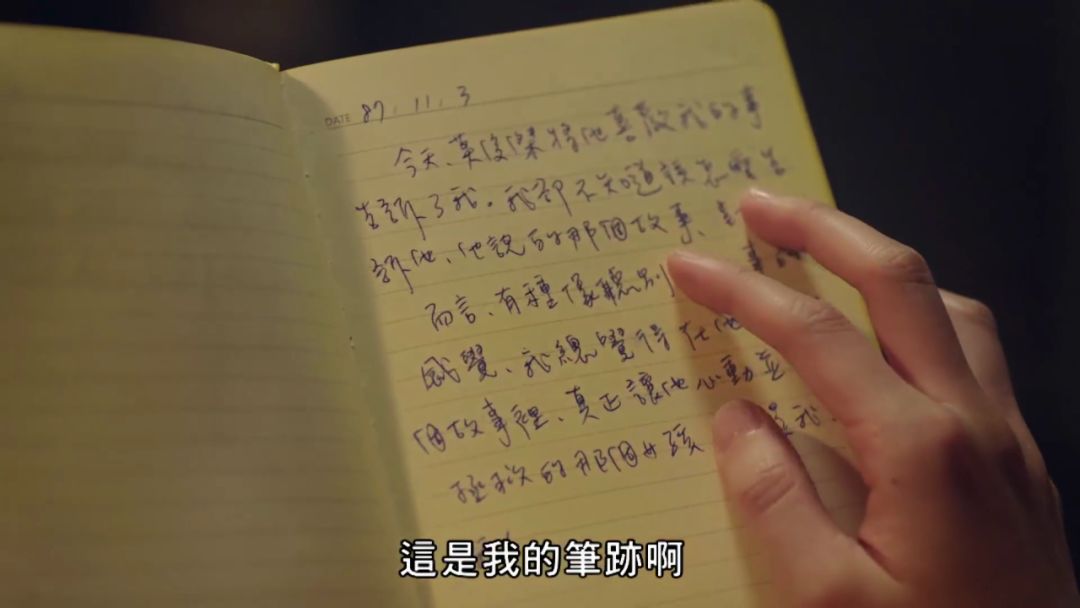 DATE 87.11.3
今天、莫俊傑將他喜歡我的事
告訴了我。我卻不知道該怎麼告
訴他、他說的那個故事、
而言、有種像聽別
感覺、我總覺得在他
個故事裡、真正讓他心動並
拯救的那個女孩 是我.
這是我的筆跡啊